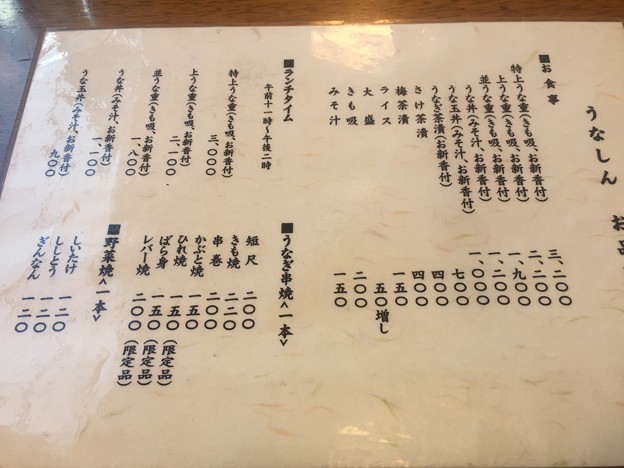 うなしん お品
■お食事
特上うな重(きも吸、お新香付) 三、二〇〇
上うな重(きも吸、お新香付) 二、二〇〇
並うな重(きも吸、お新香付) 一、九〇〇
うな丼(みそ汁、お新香付) 一、二〇〇
うな玉丼(みそ汁、お新香付) 一、〇〇〇
うなぎ茶漬(お新香付) 七〇〇
さけ茶漬 四〇〇
梅茶漬 四〇〇
ライス 一五〇
大盛 五〇増し
きも吸 二〇〇
みそ汁 一五〇
■ランチタイム
午前十一時〜午後二時
特上うな重(きも吸、お新香付)
三、〇〇〇
上うな重(きも吸、お新香付)
二、一〇〇
並うな重(きも吸、お新香付)
一、八〇〇
うな丼(みそ汁、お新香付)
一、一〇〇
うな玉丼(みそ汁、お新香付)
九〇〇
■うなぎ串焼<一本>
短尺 二〇〇
きも焼 二二〇
串巻 二〇〇
かぶと焼 一五〇
ひれ焼 一五〇(限定品)
ばら身 一五〇(限定品)
レバー焼 二〇〇(限定品)
■野菜焼<一本>
しいたけ 一二〇
ししとう 一二〇
ぎんなん 一二〇